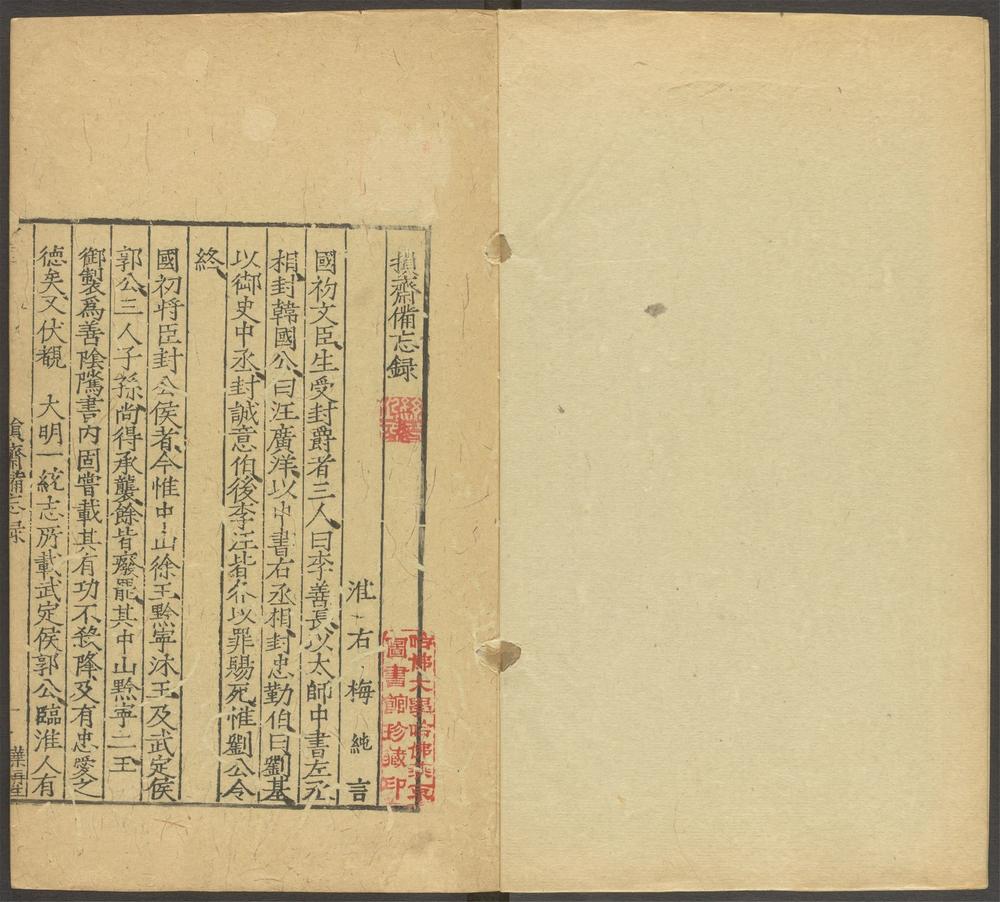 損齋備忘録
淮右梅純言
國初文臣生受封爵者三人曰李善長以太師中書左丞
相封韓國公曰汪廣洋以中書右丞相封忠勤伯曰劉基
以御史中丞封誠意伯後李汪皆以罪賜死惟劉公令
終
國初將臣封公侯者今惟中山徐王黔寧沐王及武定侯
郭公三人子孫尚得承襲餘皆廢罷其中山黔寧二王
御製為善陰隲書内固嘗載其有功不殺降及有忠愛之
徳矣又伏覩 大明一統志所載武定侯郭公臨淮人有
損齋備忘录
一
哈佛大學哈佛燕京
圖書館珍藏印